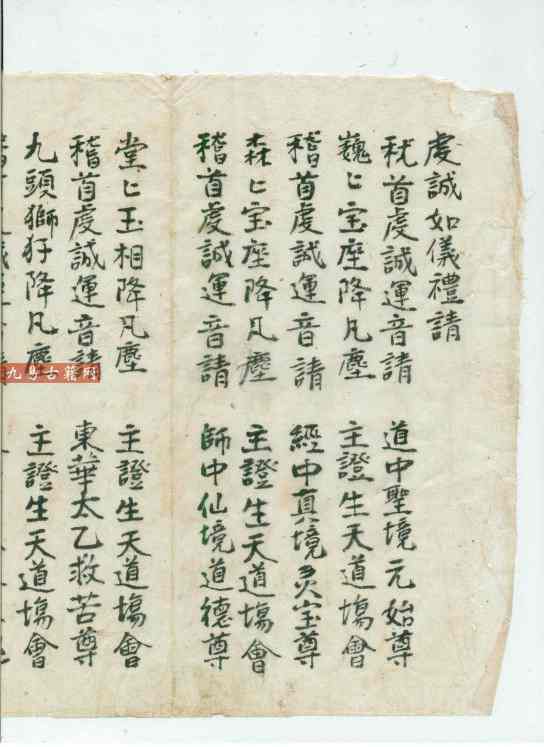 虔誠如儀禮請
秇首虔誠運音請 道中聖境元始尊
巍〻宝座降凡塵 主證生天道塲會
稽首虔誠運音請 經中真境灵宝尊
森〻宝座降凡塵 主證生天道塲會
稽首虔誠運音請 師中仙境道德尊
堂〻玉相降凡塵 主證生天道塲會
稽首虔誠運音請 東華太乙救苦尊
九頭獅犼降凡塵 主證生天道塲會
九易古籍网